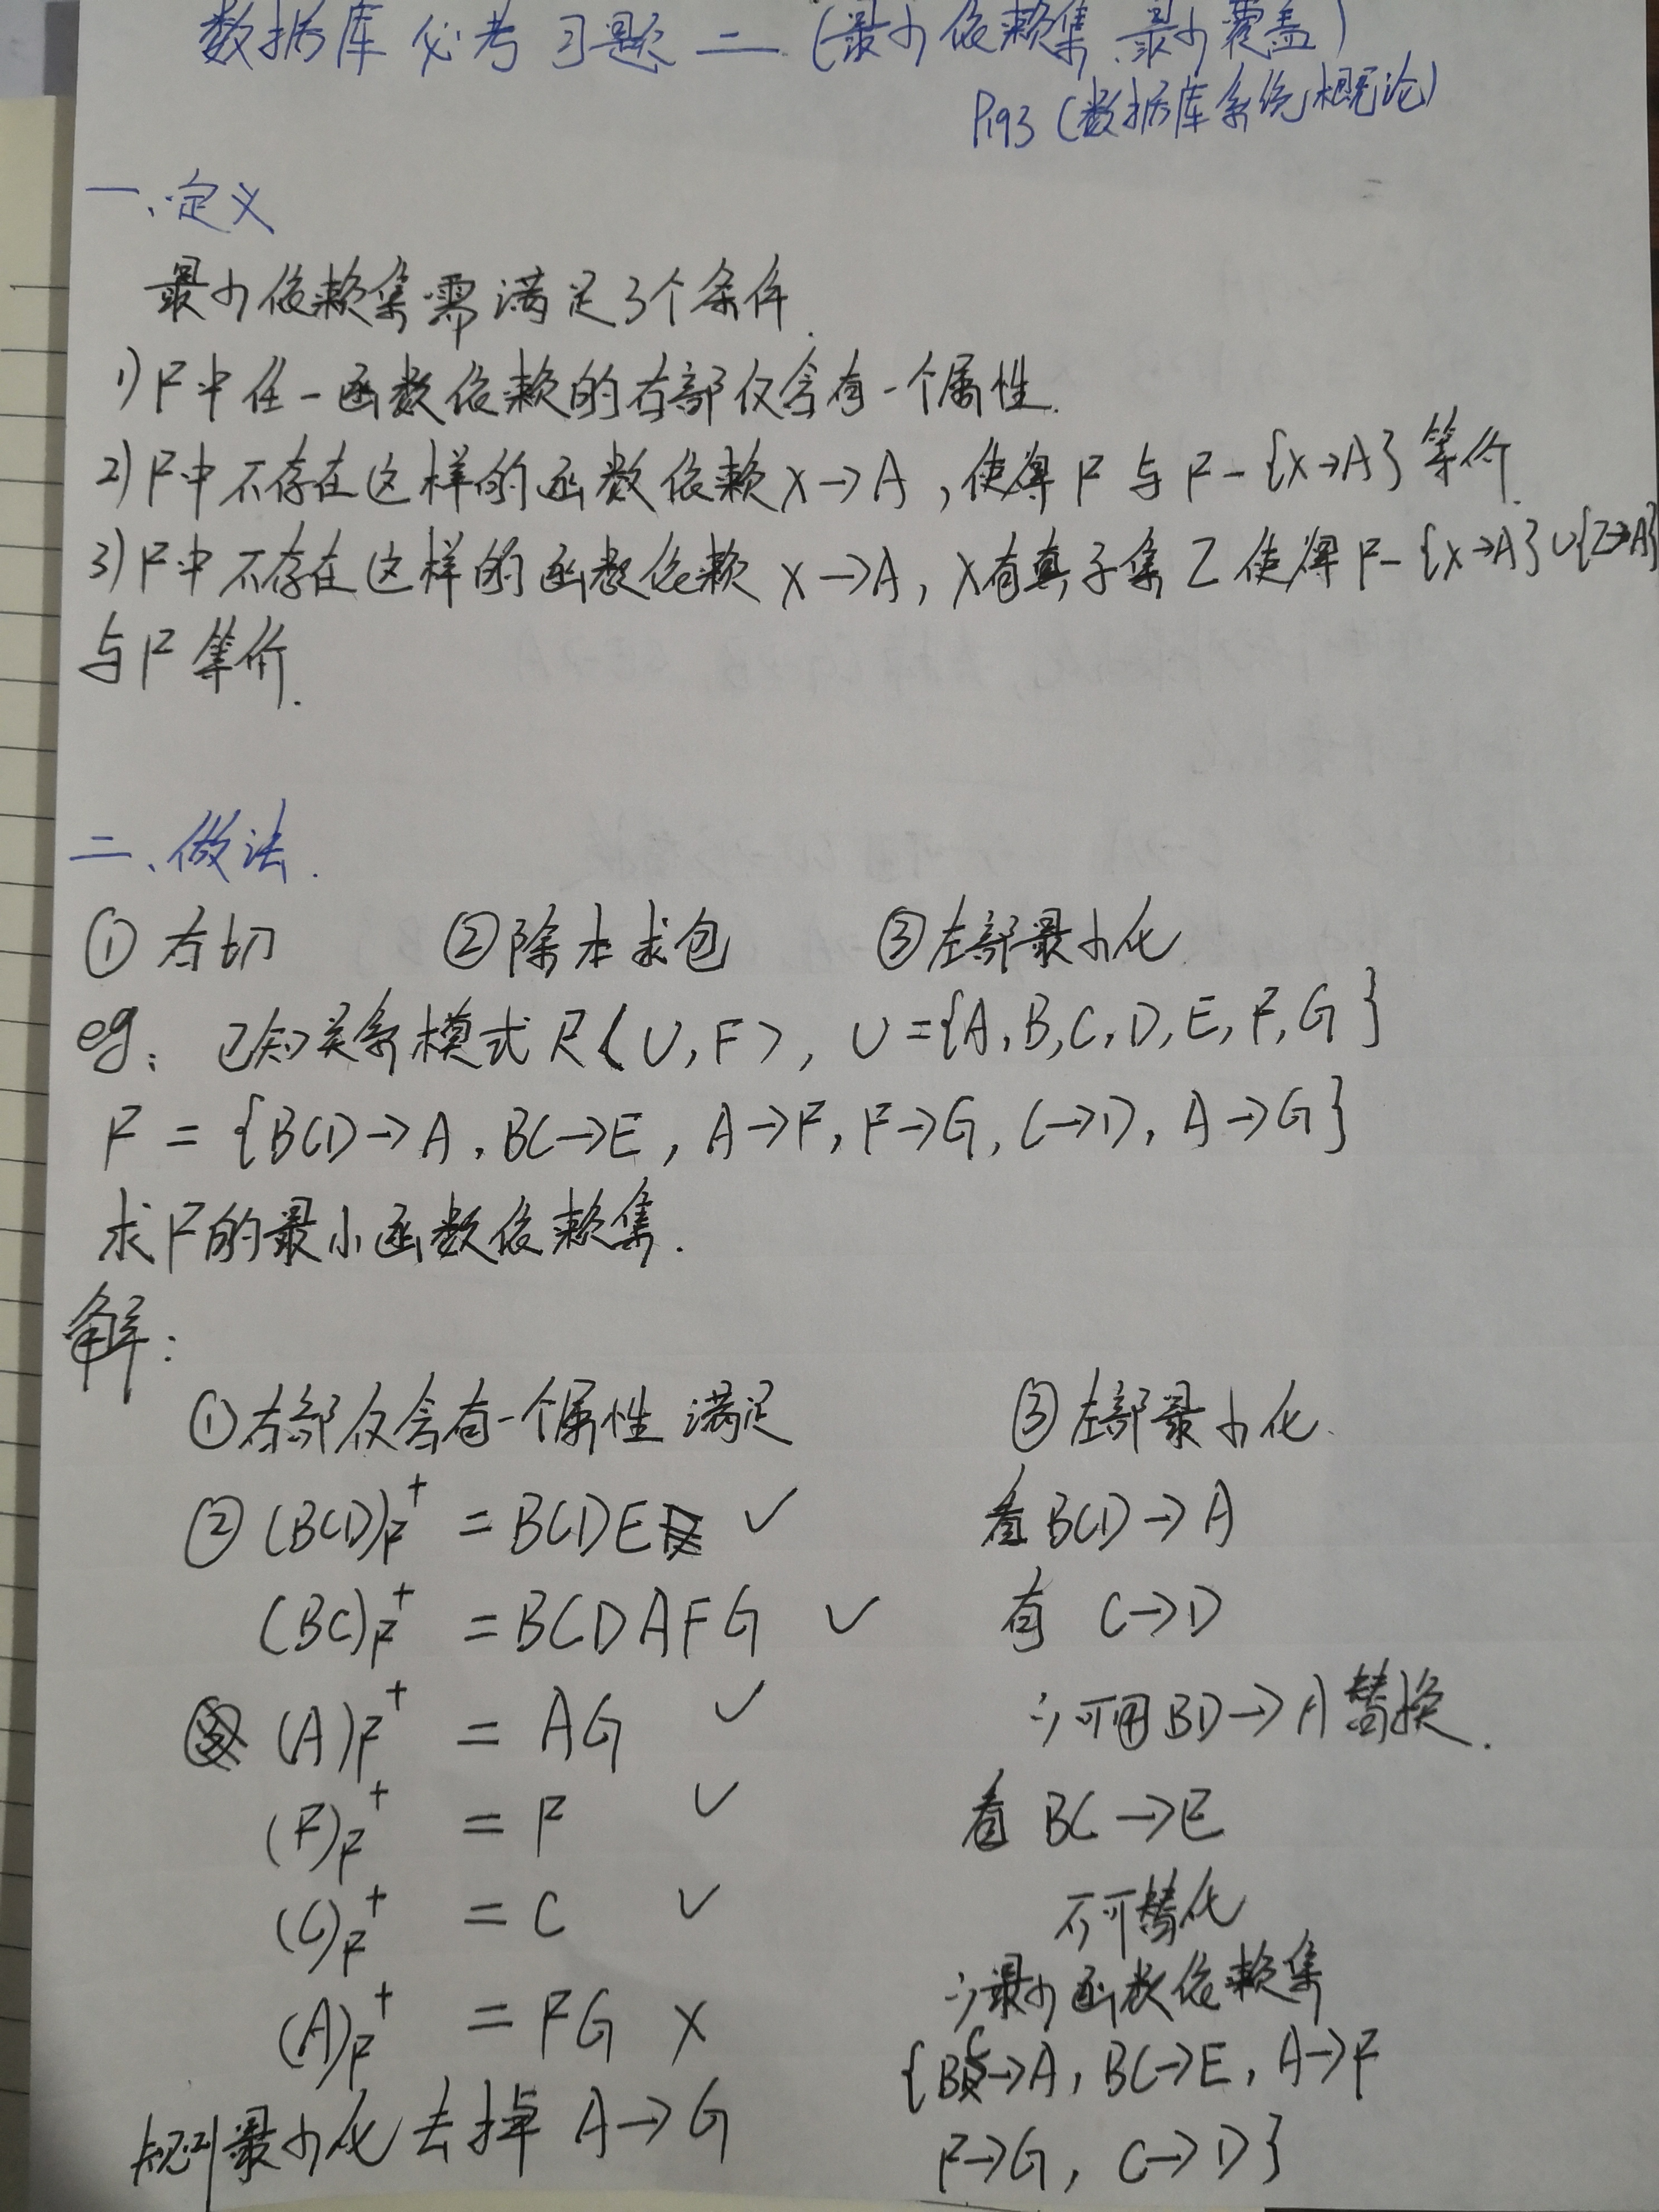 数据库必考习题二(最小依赖集、最小覆盖)
P193(数据库系统概论)
一、定义
最小依赖集需满足3个条件.
1)F中任一函数依赖的右部仅含有一个属性.
2)F中不存在这样的函数依赖X→A,使得F与F-{X→A}等价.
3)F中不存在这样的函数依赖X→A,X有真子集Z使得F-{X→A}∪{Z→A}
与F等价.
二、做法.
①右切 ②除本求包 ③左部最小化
eg: 已知关系模式R<U,F>, U={A,B,C,D,E,F,G}
F={BCD→A,BC→E,A→F,F→G,C→D,A→G}
求F的最小函数依赖集.
解:
①右部仅含有一个属性 满足
②(BCD)F⁺ =BCDE ✓
(BC)F⁺ =BCDAFG ✓
(A)F⁺ = AG ✓
(F)F⁺ = F ✓
(C)F⁺ = C ✓
(A)F⁺ = FG ×
规则最小化去掉 A→G
③左部最小化.
看BCD→A
有 C→D
∴可用BD→A替换.
看 BC→E
不可替化
∴最小函数依赖集
{BC→A, BC→E, A→F
F→G, C→D}